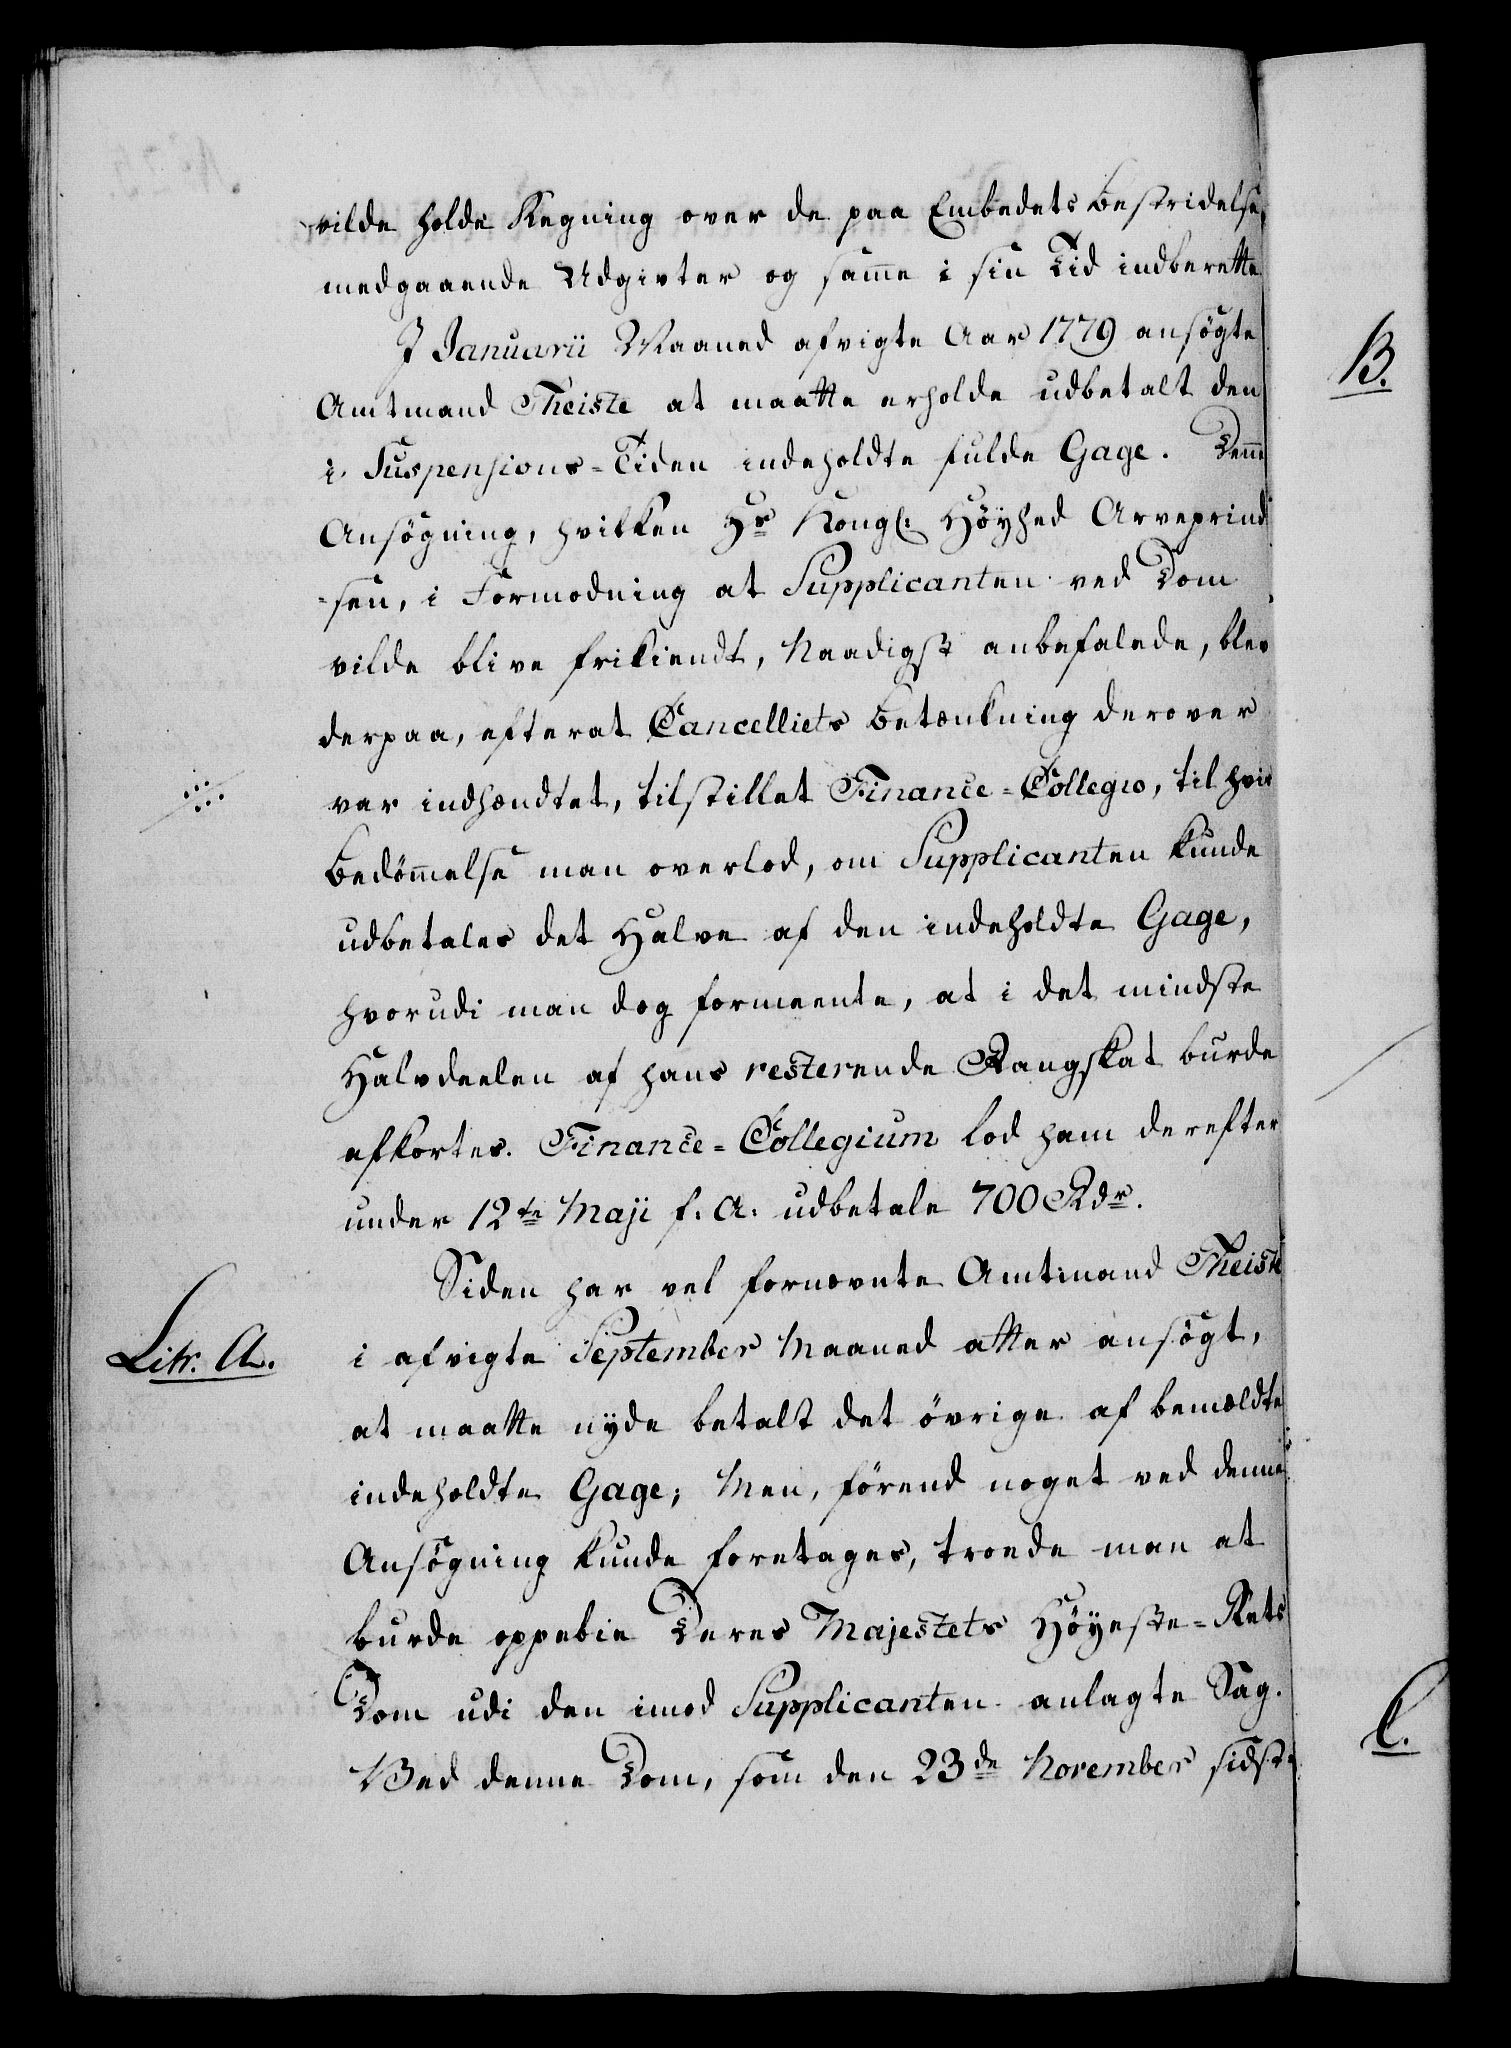 vilde holde Regning over de paa Embedets Bestridelse
medgaaende Udgivter og samme i sin Tid indberette
I Januarii Maaned afvigte Aar 1779 ansögte
Amtmand Theiste at maatte erholde udbetalt den
i Suspensions-Tiden indeholdte fulde Gage. Denne
Ansögning, hvilken Hs Kongl: Höyhed Arveprind
=sen, i Formodning at Supplicanten ved Dom
vilde blive frikiendt, Naadigst anbefalede, blev
derpaa, efterat Cancelliets Betænkning derover
var indhændtet, tilstillet Finance-Collegio, til hvis
Bedömmelse man overlod, om Supplicanten kunde
udbetales det Halve af den indeholdte Gage,
hvorudi man dog formeente, at i det mindste
Halvdeelen af hans resterende Rangskat burde
afkortes. Finance-Collegium lod ham derefter
under 12te Maji f. A. udbetale 700 Rdr.
Siden har vel fornævnte Amtmand Theiste
Litr. A.
i afvigte September Maaned atter ansögt,
at maatte nyde betalt det övrige af bemældte
indeholdte Gage; Men, förend noget ved denne
Ansögning kunde foretages, troede man at
burde oppebie Deres Majestets Höyeste-Rets
Dom udi den imod Supplicanten anlagte Sag.
Ved denne Dom, som den 23de November sidst-
B.
C.